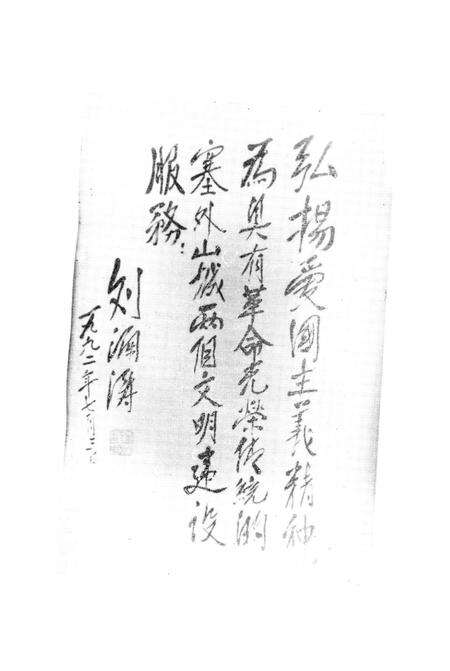 弘揚爱國主義精神
為具有革命光榮传統的
塞外山城两個文明建设
服務
刘澜涛
一九九二年七月三日